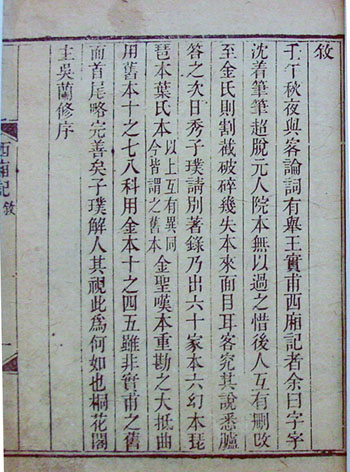 敘
壬午秋夜與客論詞有舉王實甫西廂記者余曰字字
沈着筆筆超脫元人院本無以過之惜後人互有刪改
至金氏則割截破碎幾失本來面目耳客究其說悉臚
答之次日秀子璞請別著錄乃出六十家本六幻本琵
琶本葉氏本以上互有異同今皆謂之舊本金聖嘆本重勘之大抵曲
用舊本十之七八科用金本十之四五雖非實甫之舊
而首尾略完善矣子璞解人其視此為何如也桐花閣
主吳蘭修序
西廂記 敘